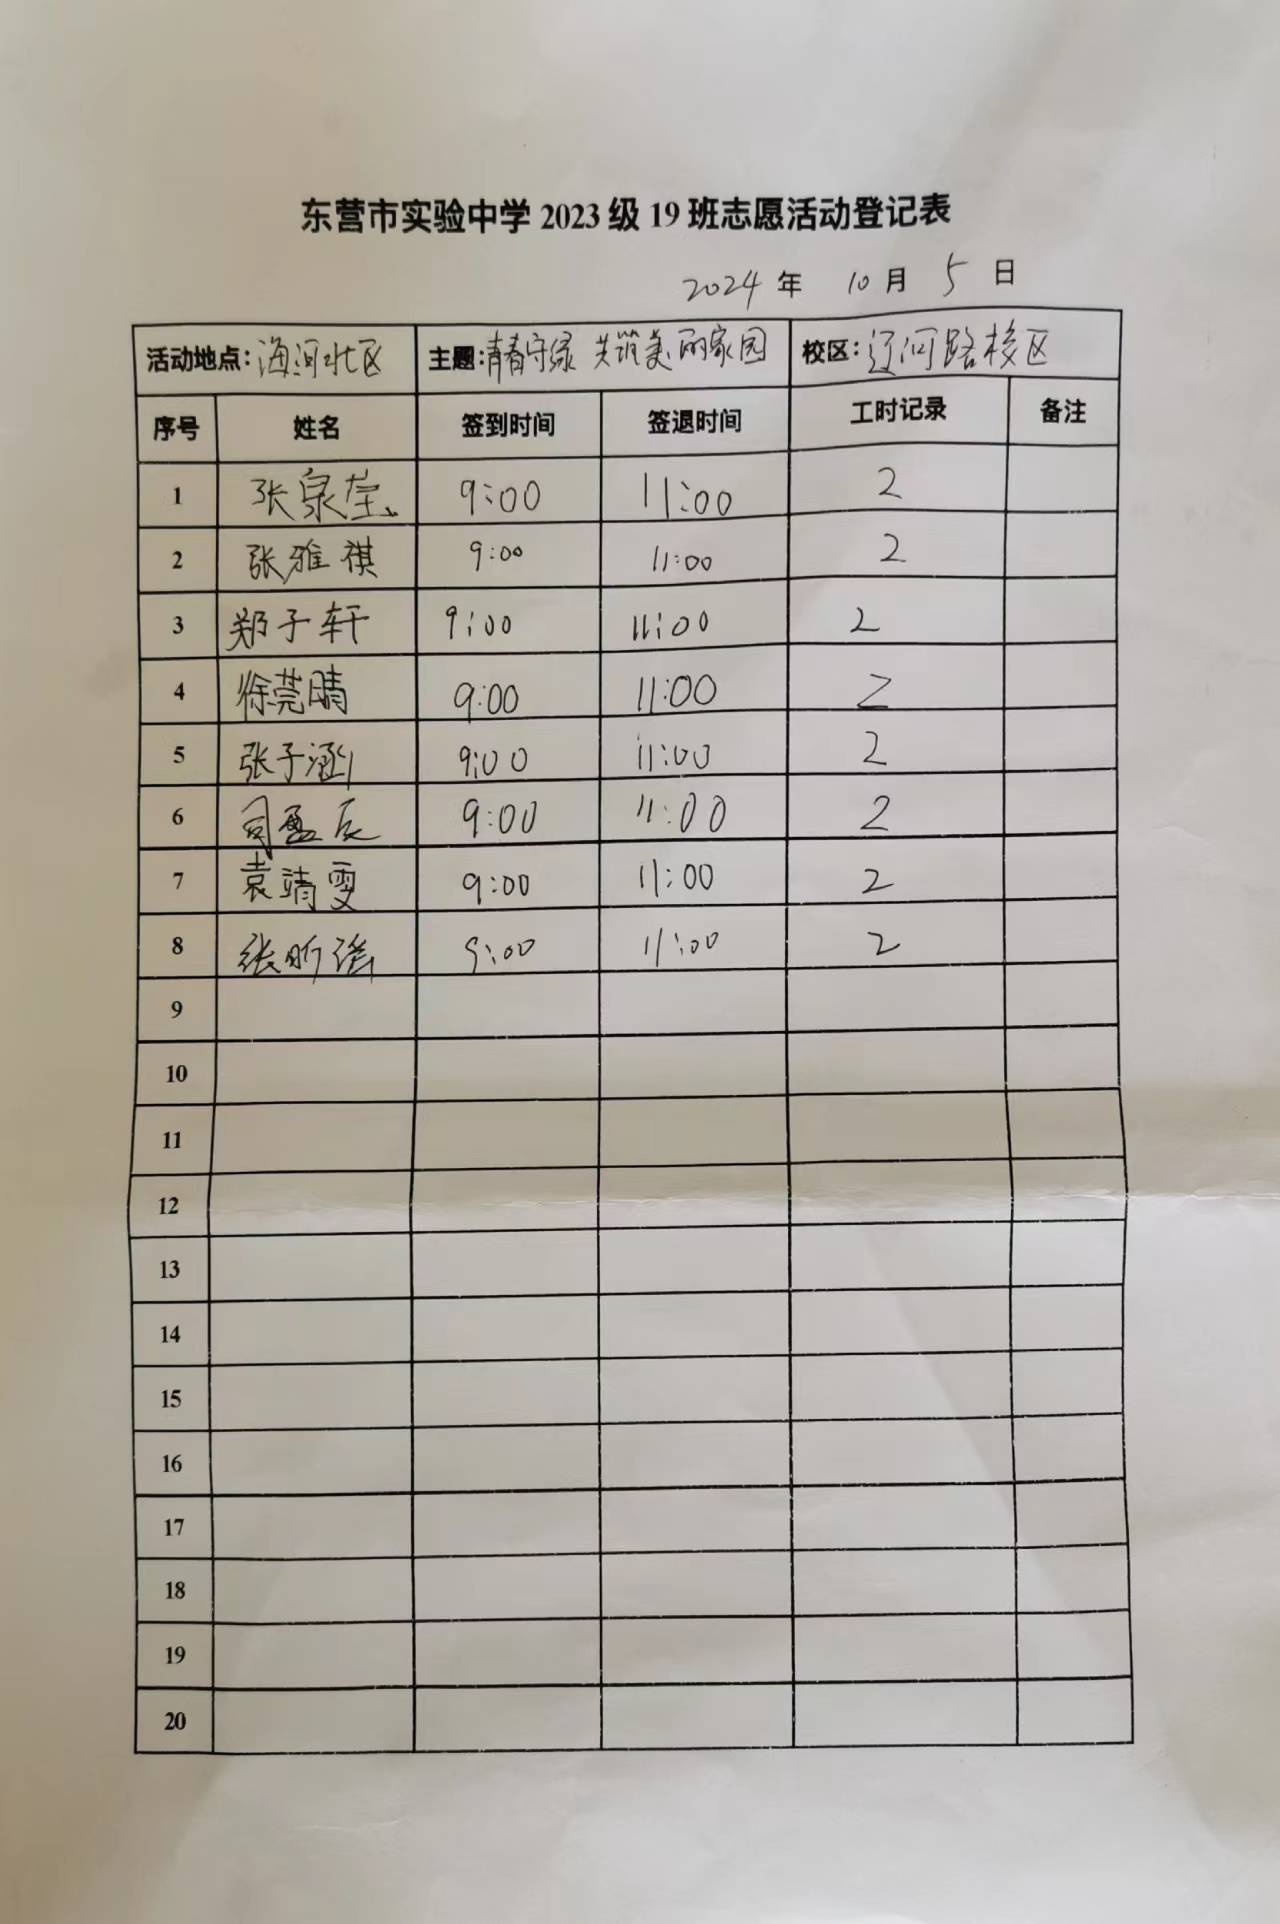 东营市实验中学 2023 级 19 班志愿活动登记表
2024 年 10 月 5 日
活动地点: 海河北区 主题: 青春守绿 共筑美丽家园 校区: 辽河路校区
序号 姓名 签到时间 签退时间 工时记录 备注
1 张泉莹 9:00 11:00 2
2 张雅祺 9:00 11:00 2
3 郑子轩 9:00 11:00 2
4 徐莞晴 9:00 11:00 2
5 张子涵 9:00 11:00 2
6 司盈辰 9:00 11:00 2
7 袁靖雯 9:00 11:00 2
8 张昕瑶 9:00 11:00 2
9
10
11
12
13
14
15
16
17
18
19
20